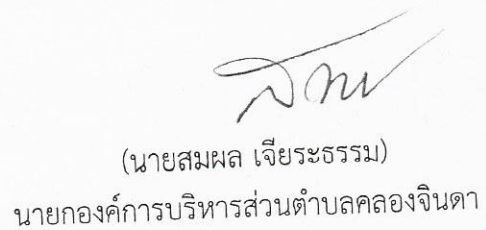 (นายสมผล เจียระธรรม)
นายกองค์การบริหารส่วนตำบลคลองจินดา